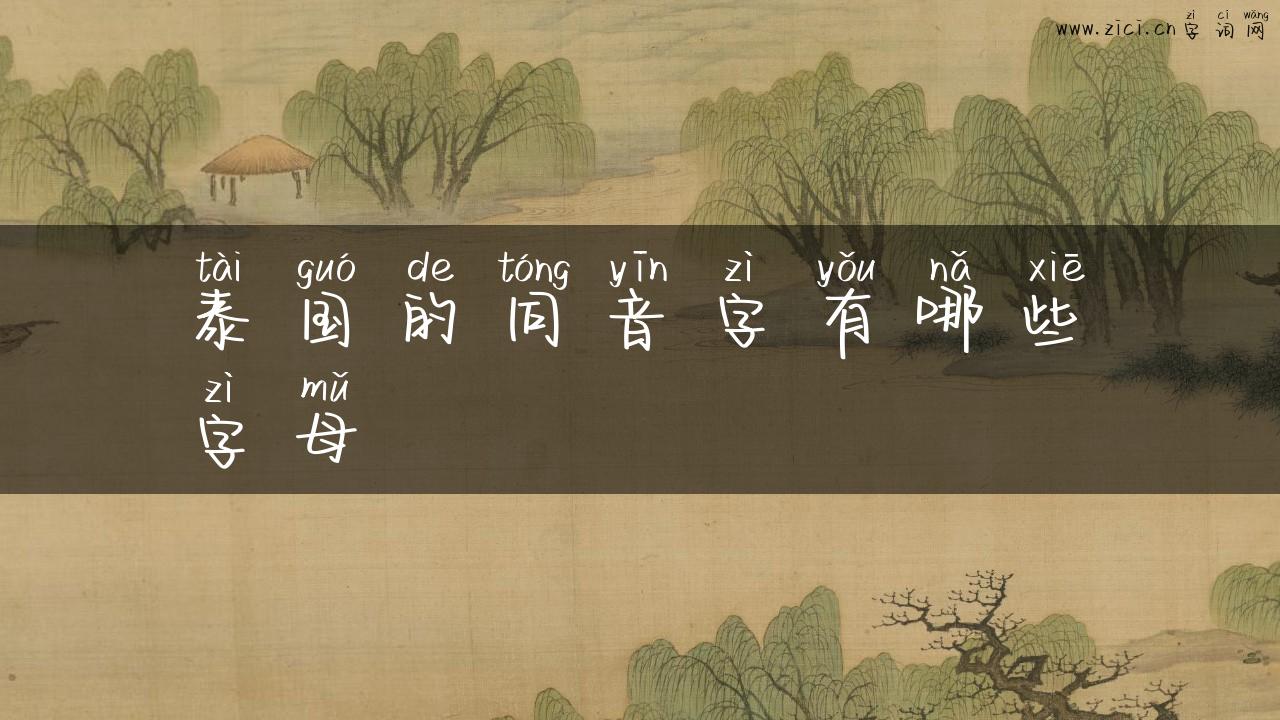 zì cí wǎng
www.zici.cn字词网
tài guó de tóng yīn zì yǒu nǎ xiē
泰国的同音字有哪些
zì mǔ
字母